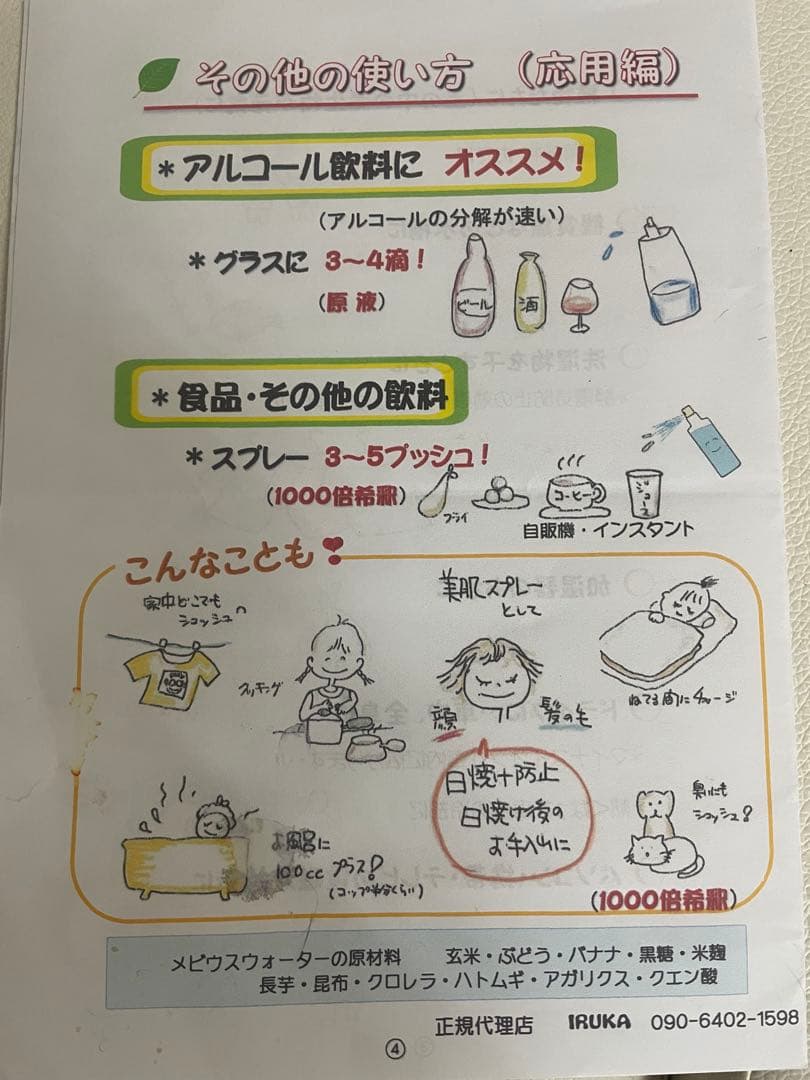 その他の使い方　（応用編）
＊アルコール飲料に　オススメ！
（アルコールの分解が速い）
＊グラスに　3～4滴！
（原 液）
ビール
酒
＊食品・その他の飲料
＊スプレー　3～5プッシュ！
（1000倍希釈）
フライ
コーヒー
ジュース
自販機・インスタント
こんなことも
家中どこでも
ショッシュ
キッチング
美肌スプレー
として
顔
髪の毛
ねてる間にチャージ
日焼け防止
日焼け後の
お手入れに
お風呂に
100cc プラス!
(コップ半分くらい)
臭いにも
ショッシュ!
（1000倍希釈）
メビウスウォーターの原材料　玄米・ぶどう・バナナ・黒糖・米麹
長芋・昆布・クロレラ・ハトムギ・アガリクス・クエン酸
正規代理店　IRUKA　090-6402-1598
④